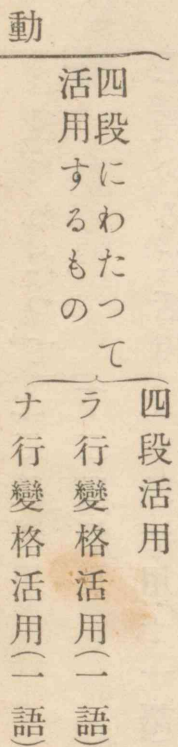 動
四段にわたつて
活用するもの
四段活用
ラ行變格活用(一語)
ナ行變格活用(一語)